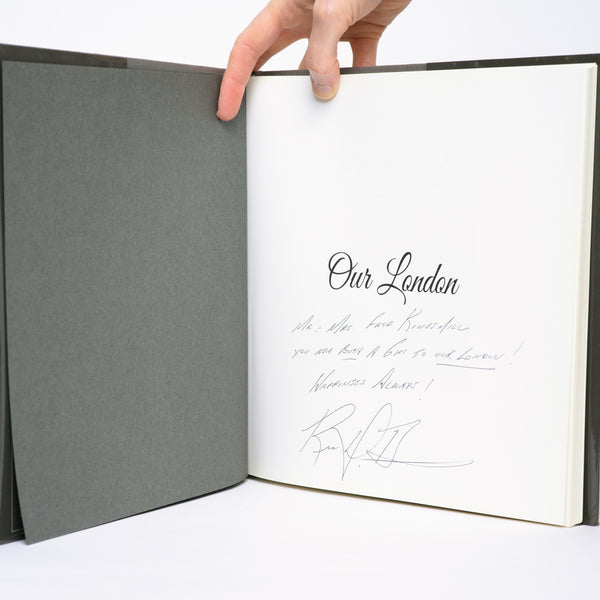 Our London
Mr. & Mrs. Fred Kingsmill
You are both a gift to our London!
Happiness Always!